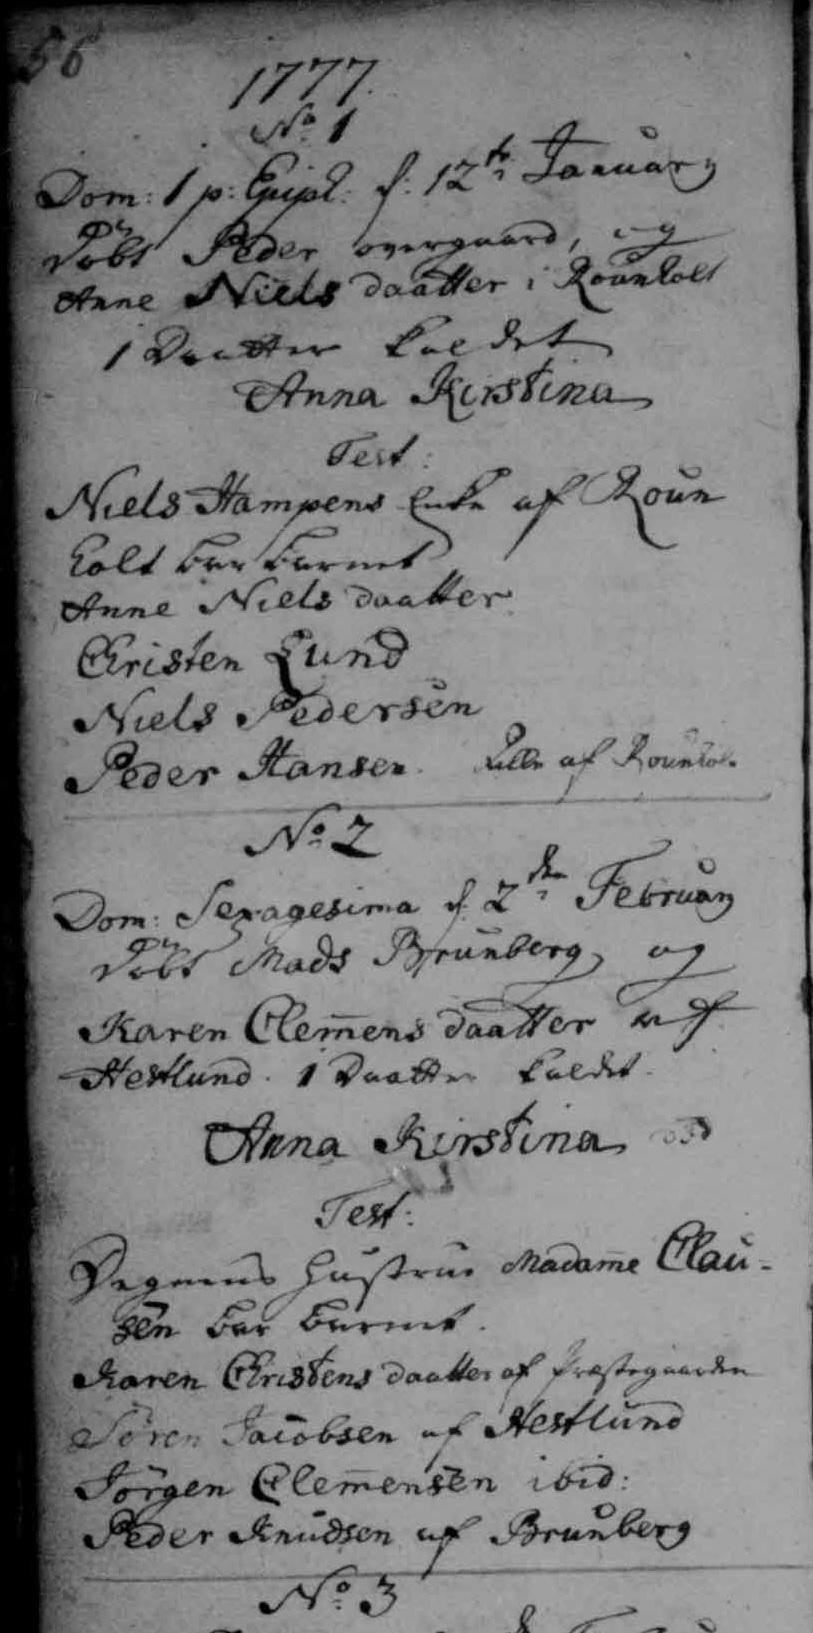 56
1777.
No 1
Dom: 1 p: Epiph: d: 12te January
döbt Peder overgaard, og
Anne Niels daatter i Rounholt
1 Daatter kaldet
Anna Kirstina
Test:
Niels Hampens Enke af Roun
holt bar barnet
Anne Niels daatter
Christen Lund
Niels Pedersen
Peder Hansen. alle af Rounhol
No 2
Dom: Sexagesima d: 2den February
döbt Mads Brunberg, og
Karen Clem̄ens daatter af
Hestlund. 1 Daatter kaldet.
Anna Kirstina
Test:
Degnens Hustrue Madam̄e Clau-
sen bar barnet.
Karen Christens daatter af Præstegaarden
Sören Jacobsen af Hestlund
Jörgen Clem̄ensen ibid:
Peder Knudsen af Brunberg
No 3